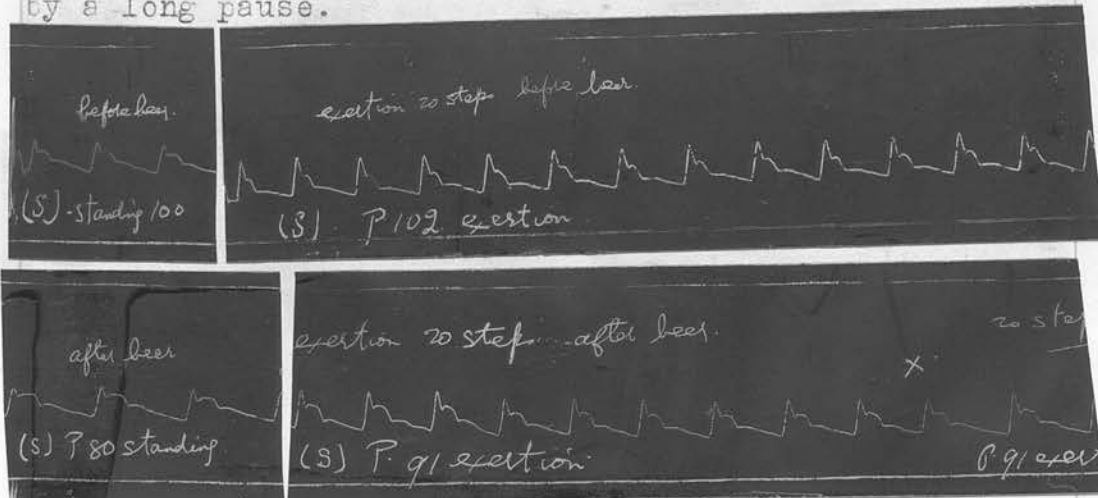 by a long pause.
before beer.
(S) - standing 100
exertion 20 steps before beer.
(S). P 102 exertion.
after beer
(S) P 80 standing.
exertion 20 steps after beer.
(S) P. 91 exertion.
X
20 step
P. 91 exer